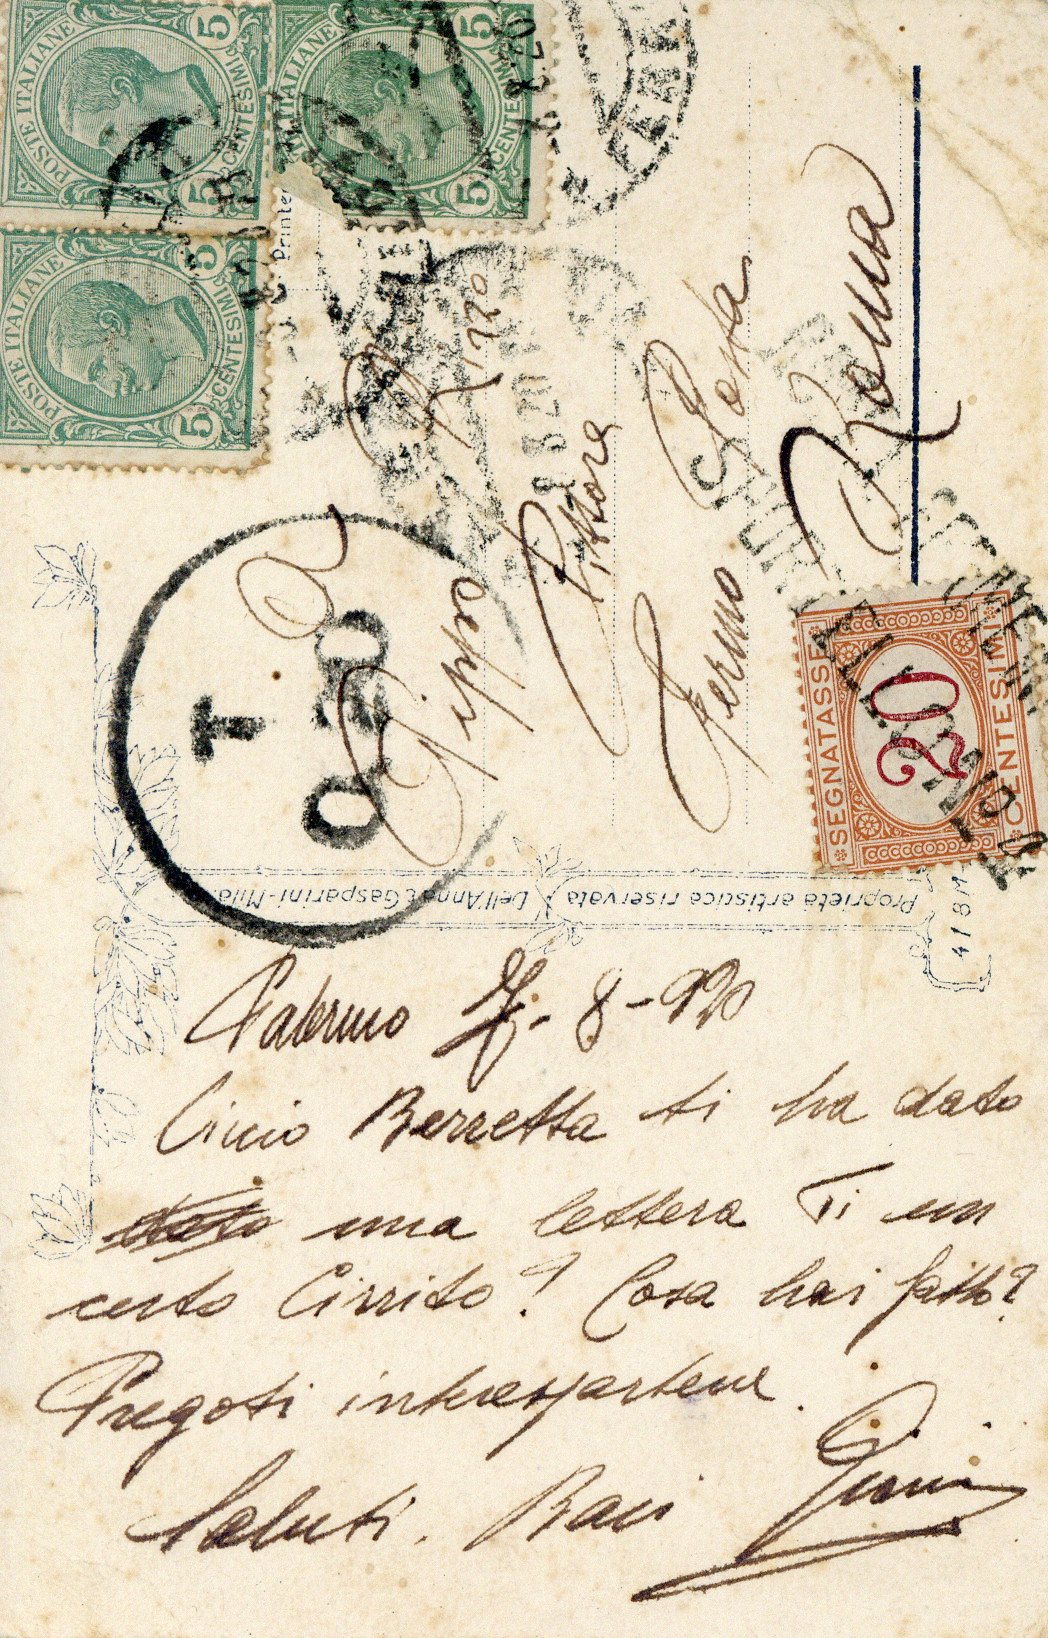 POSTE ITALIANE
5 CENTESIMI 5
POSTE ITALIANE
5 CENTESIMI 5
ITALIANE
5 CENTESIMI 5
Printed
T
0.20
A
Pippo Rizzo
Pittore
Fermo Posta
Roma
SEGNATASSE
20
CENTESIMI
Proprietà artistica riservata
Dell'Anna & Gasparini-Mila
Palermo 7-8-920
Ciccio Berretta ti ha dato
una lettera Di un
certo Cirrito? Cosa hai fatto?
Pregoti interessartene.
Saluti. Baci